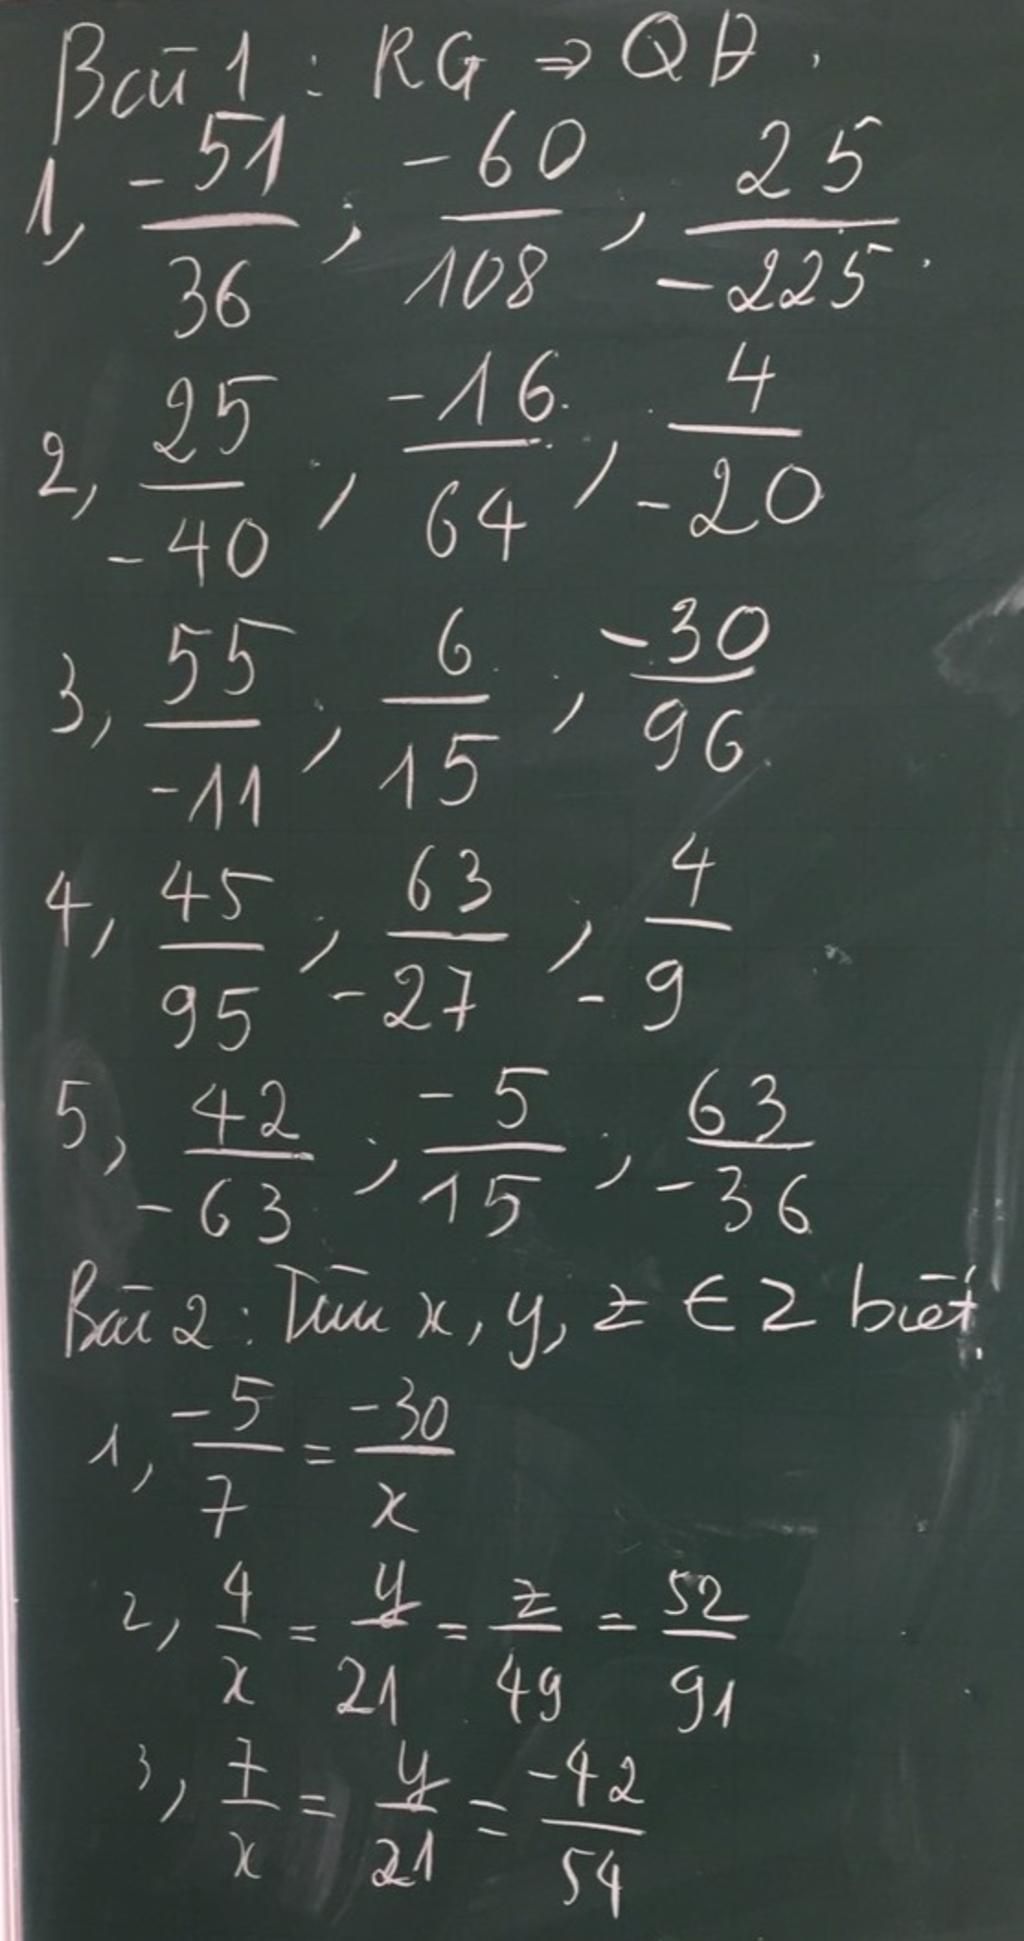 Bài 1 : RG ⇒ QĐ.
1, -51/36 ; -60/108 ; 25/-225.
2, 25/-40 ; -16/64 ; 4/-20
3, 55/-11 ; 6/15 ; -30/96
4, 45/95 ; 63/-27 ; 4/-9
5, 42/-63 ; -5/15 ; 63/-36
Bài 2 : Tìm x, y, z ∈ Z biết
1, -5/7 = -30/x
2, 4/x = y/21 = z/49 = 52/91
3, 7/x = y/21 = -42/54